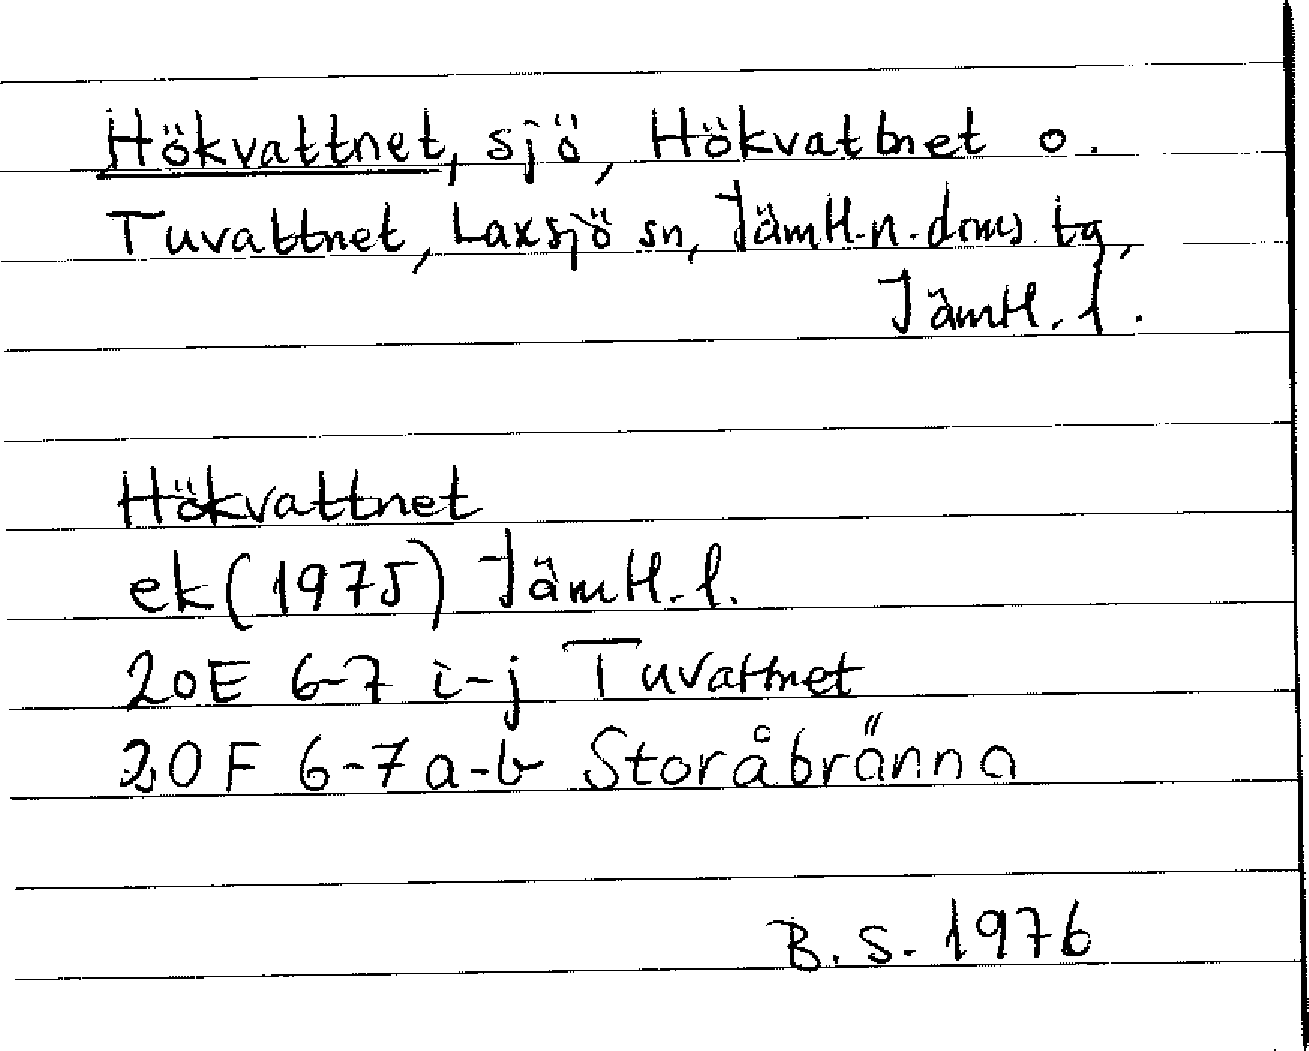 Hökvattnet, sjö, Hökvattnet o.
Tuvattnet, Laxsjö sn, Jämtl. n. doms. tg,
Jämtl. l.
Hökvattnet
ek (1975) Jämtl. l.
20E 6-7 i-j Tuvattnet
20F 6-7 a-b Storåbränna
B. S. 1976